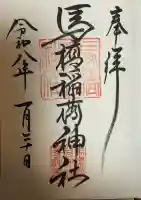 奉拝
馬橋稲荷神社
令和八年 一月二十日